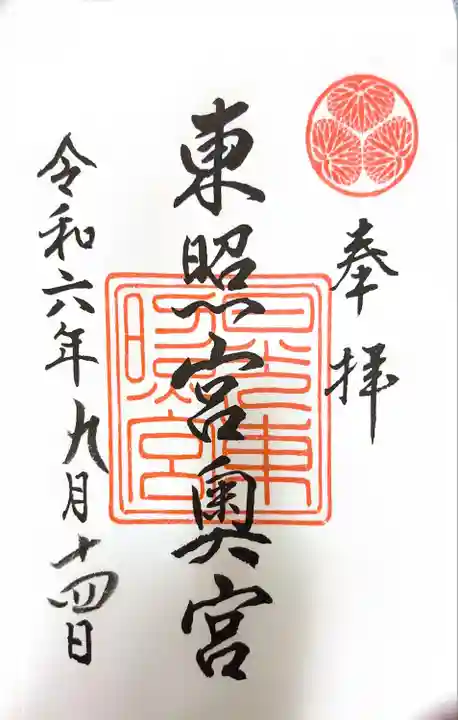 奉拝
東照宮奥宮
日光東照宮
令和六年九月十四日